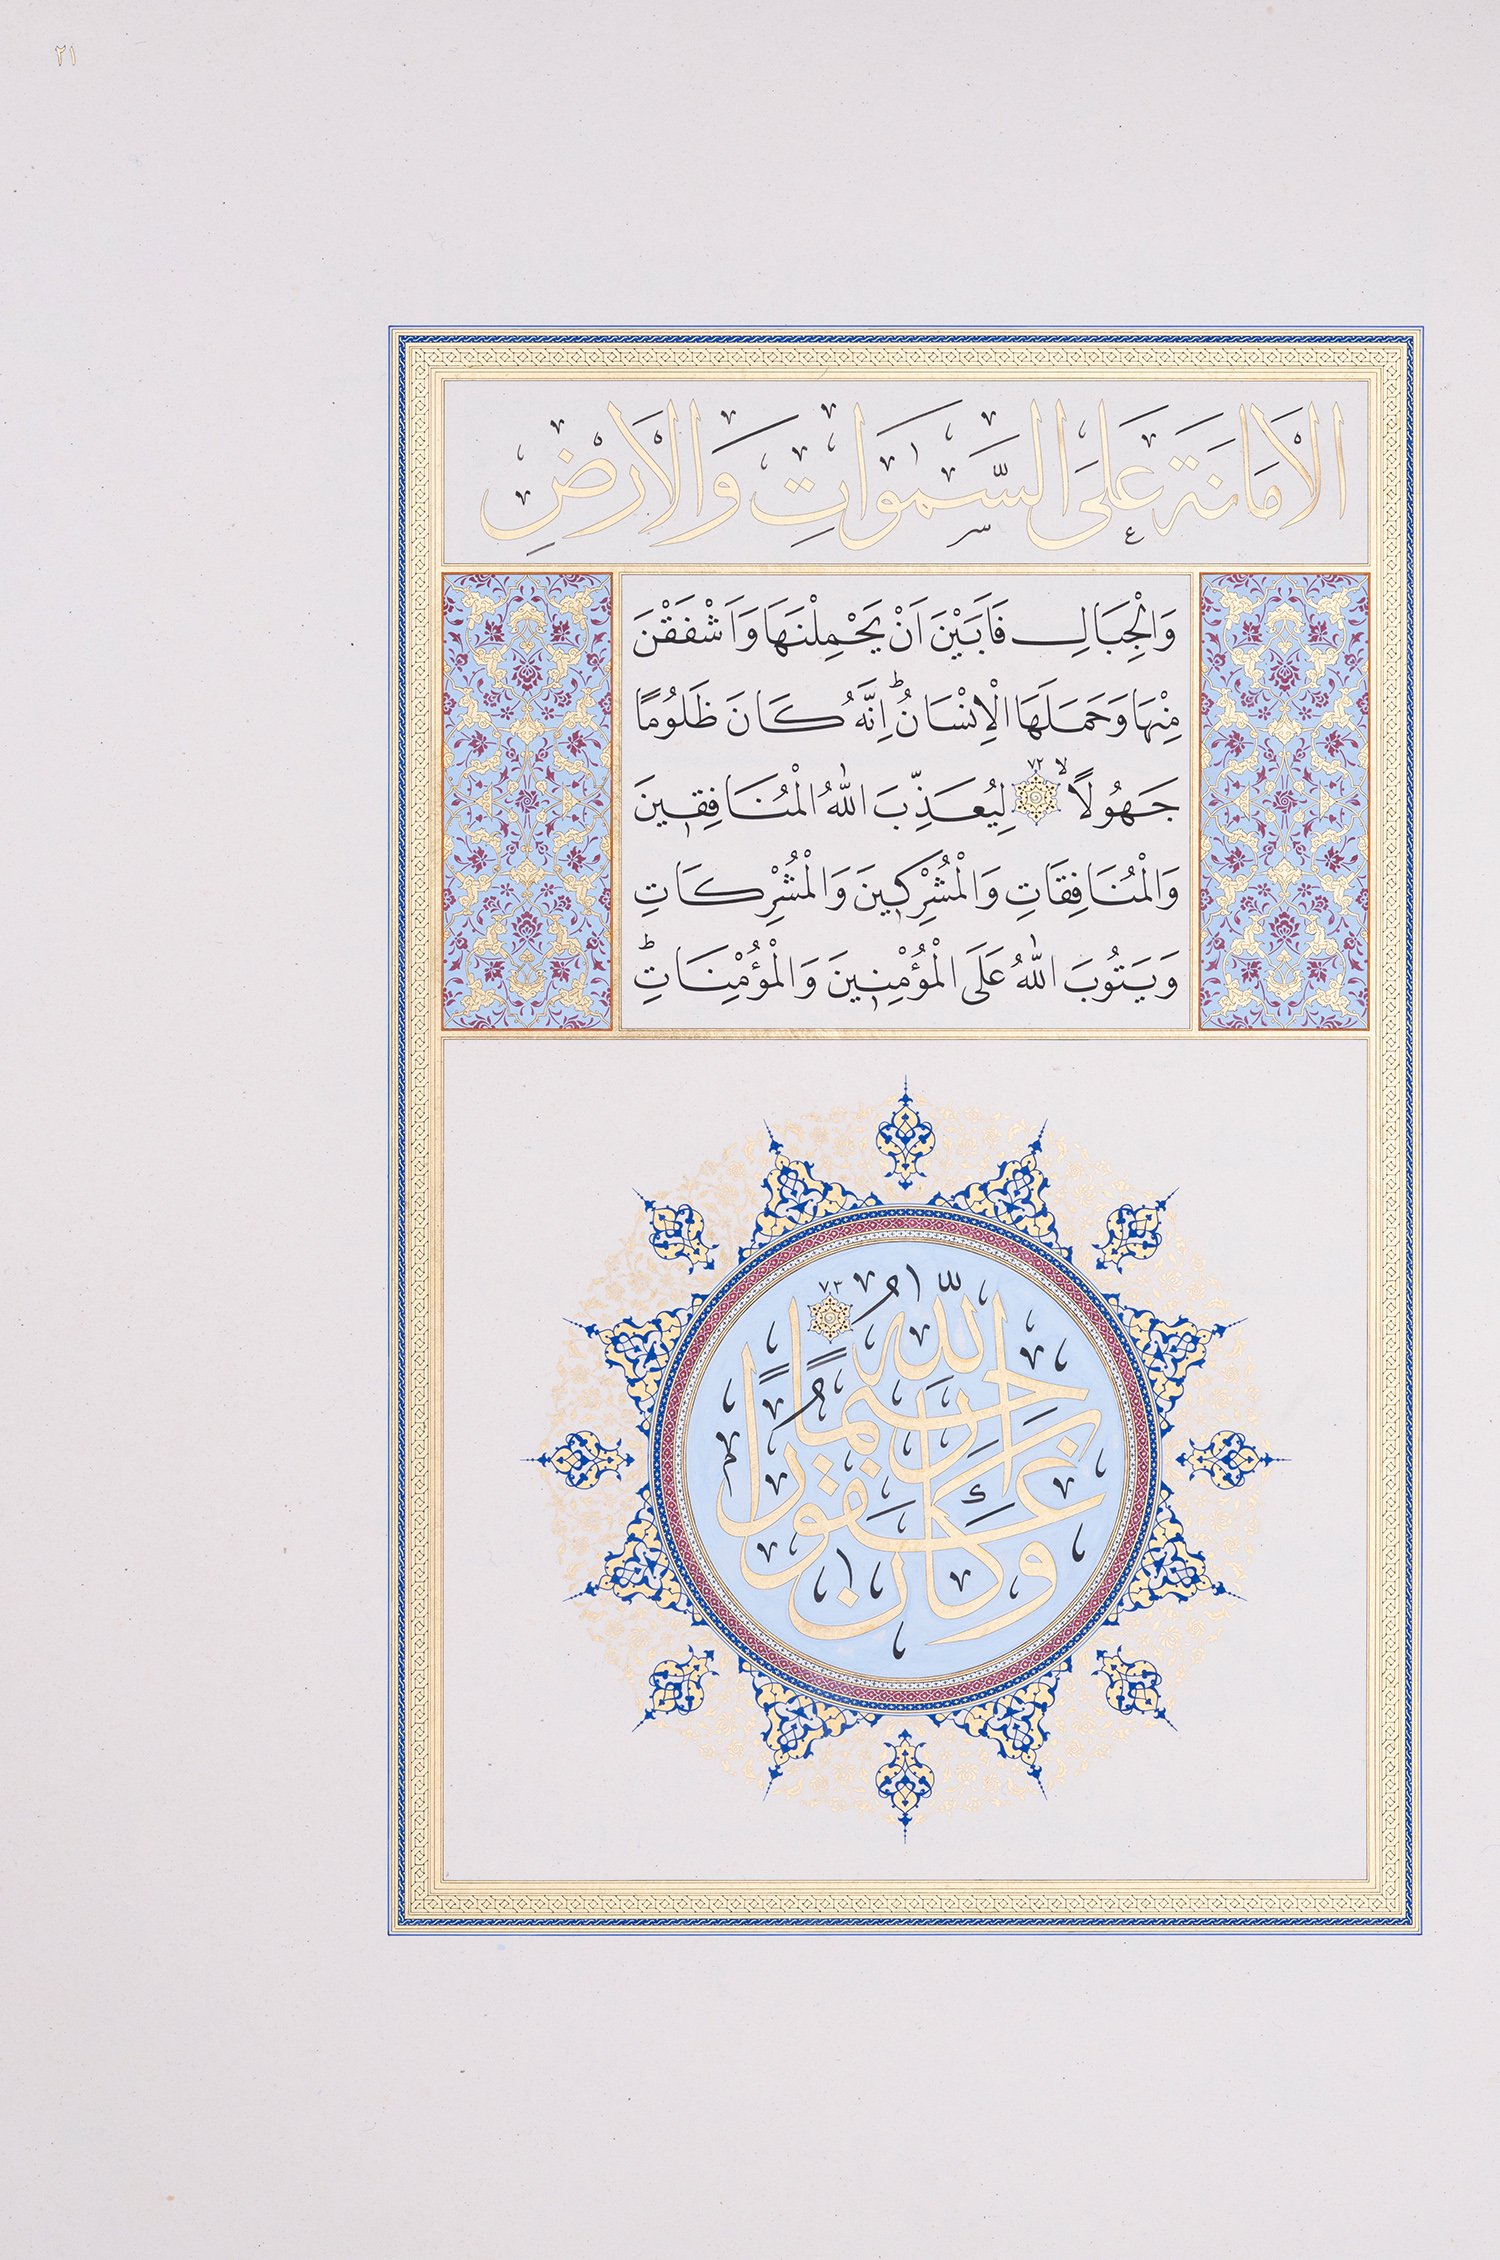 ٢١
الْاَمَانَةَ عَلَى السَّمٰوَاتِ وَالْاَرْضِ
وَالْجِبَالِ فَاَبَيْنَ اَنْ يَحْمِلْنَهَا وَاَشْفَقْنَ
مِنْهَا وَحَمَلَهَا الْاِنْسَانُۜ اِنَّهُ كَانَ ظَلُومًا
جَهُولًاۙ ٧٢ لِيُعَذِّبَ اللّٰهُ الْمُنَافِقِينَ
وَالْمُنَافِقَاتِ وَالْمُشْرِكِينَ وَالْمُشْرِكَاتِ
وَيَتُوبَ اللّٰهُ عَلَى الْمُؤْمِنِينَ وَالْمُؤْمِنَاتِؕ
وَكَانَ اللّٰهُ غَفُورًا رَحِيمًا ٧٣